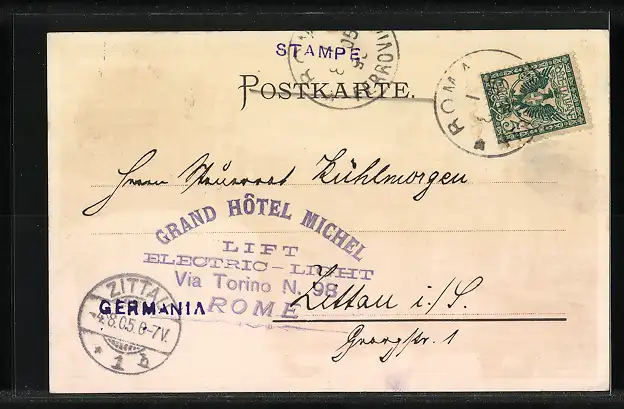 STAMPE
POSTKARTE.
ROMA
Herrn Steuerrat Kühlmorgen
GRAND HÔTEL MICHEL
LIFT
ELECTRIC-LIGHT
Via Torino N. 98
ROME
GERMANIA
Zittau i/S.
Georgstr. 1
ZITTAU
4.8.05.6-7V.
* 1 b